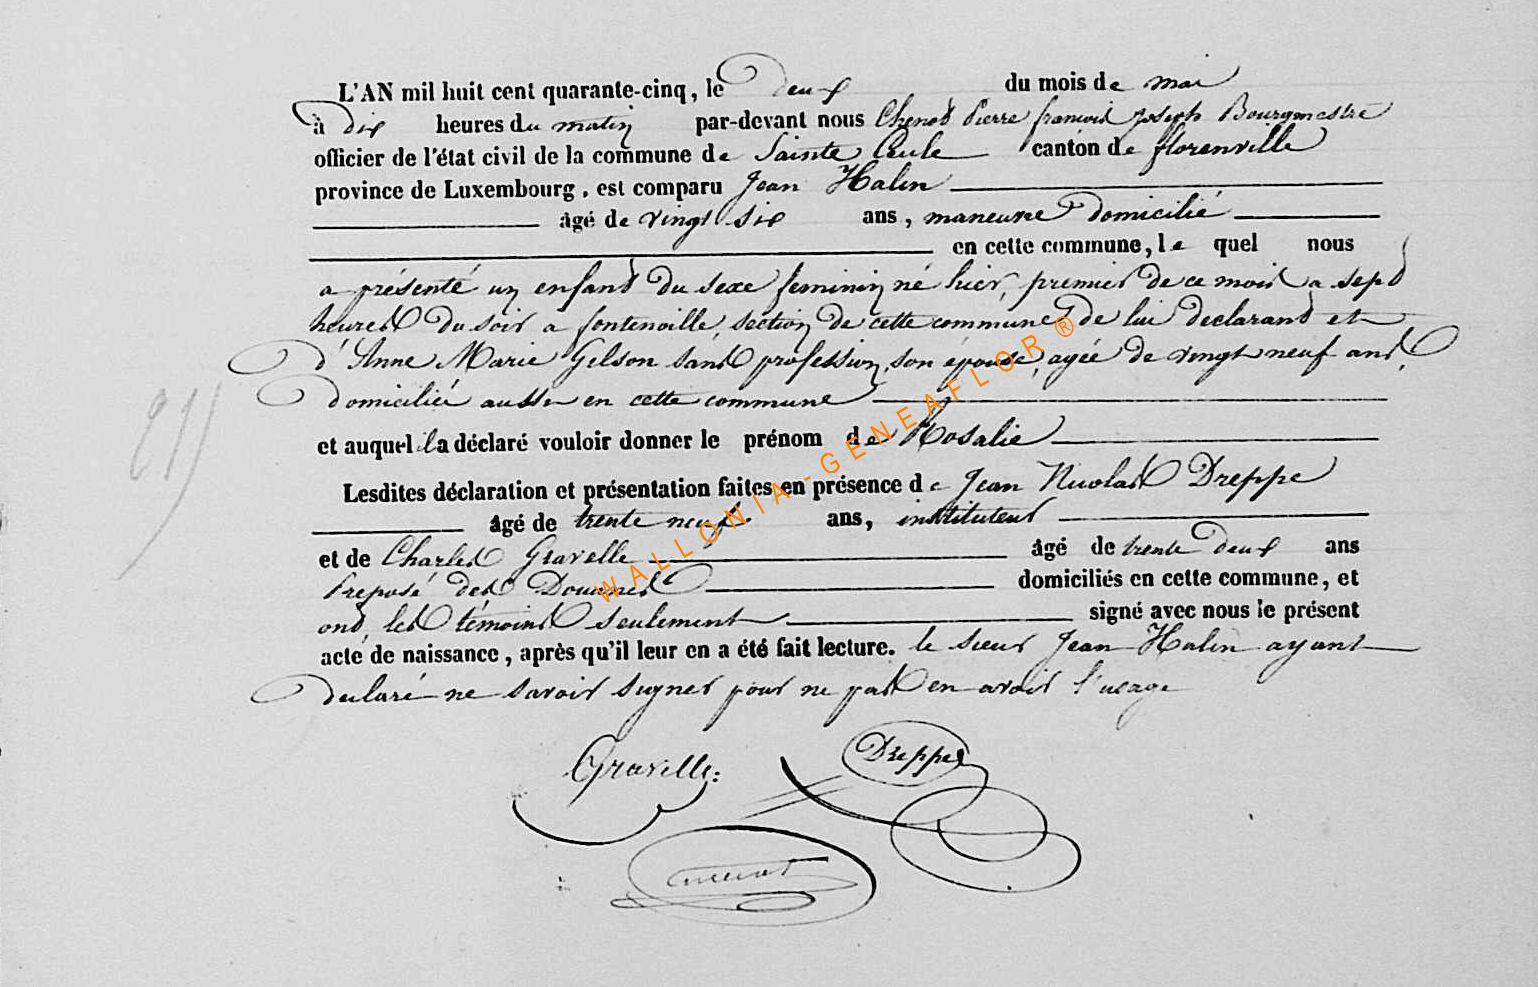 L'AN mil huit cent quarante-cinq, le deux du mois de mai
à dix heures du matin par-devant nous Chenot Pierre francois Joseph Bourgmestre
officier de l'état civil de la commune de Sainte Cecile canton de florenville
province de Luxembourg, est comparu Jean Halin
âgé de vingt six ans, maneuvre domicilié
en cette commune, le quel nous
a présenté un enfant du sexe feminin né hier, premier de ce mois a sept
heures du soir a fontenoille, section de cette commune de lui declarant et
d'Anne Marie Gilson sans profession, son épouse, agée de vingt neuf ans,
domiciliée aussi en cette commune
et auquel il a déclaré vouloir donner le prénom de Rosalie
Lesdites déclaration et présentation faites en présence de Jean Nicolas Dreppe
âgé de trente neuf ans, instituteur
et de Charles Gravelle âgé de trente deux ans
Preposé des Douanes domiciliés en cette commune, et
ont, les témoins seulement signé avec nous le présent
acte de naissance, après qu'il leur en a été fait lecture. le sieur Jean Halin ayant
declaré ne savoir signer pour ne pas en avoir l'usage
21)
Gravelle
Dreppe
Chenot
WALLONIA-GENEAFLOR®